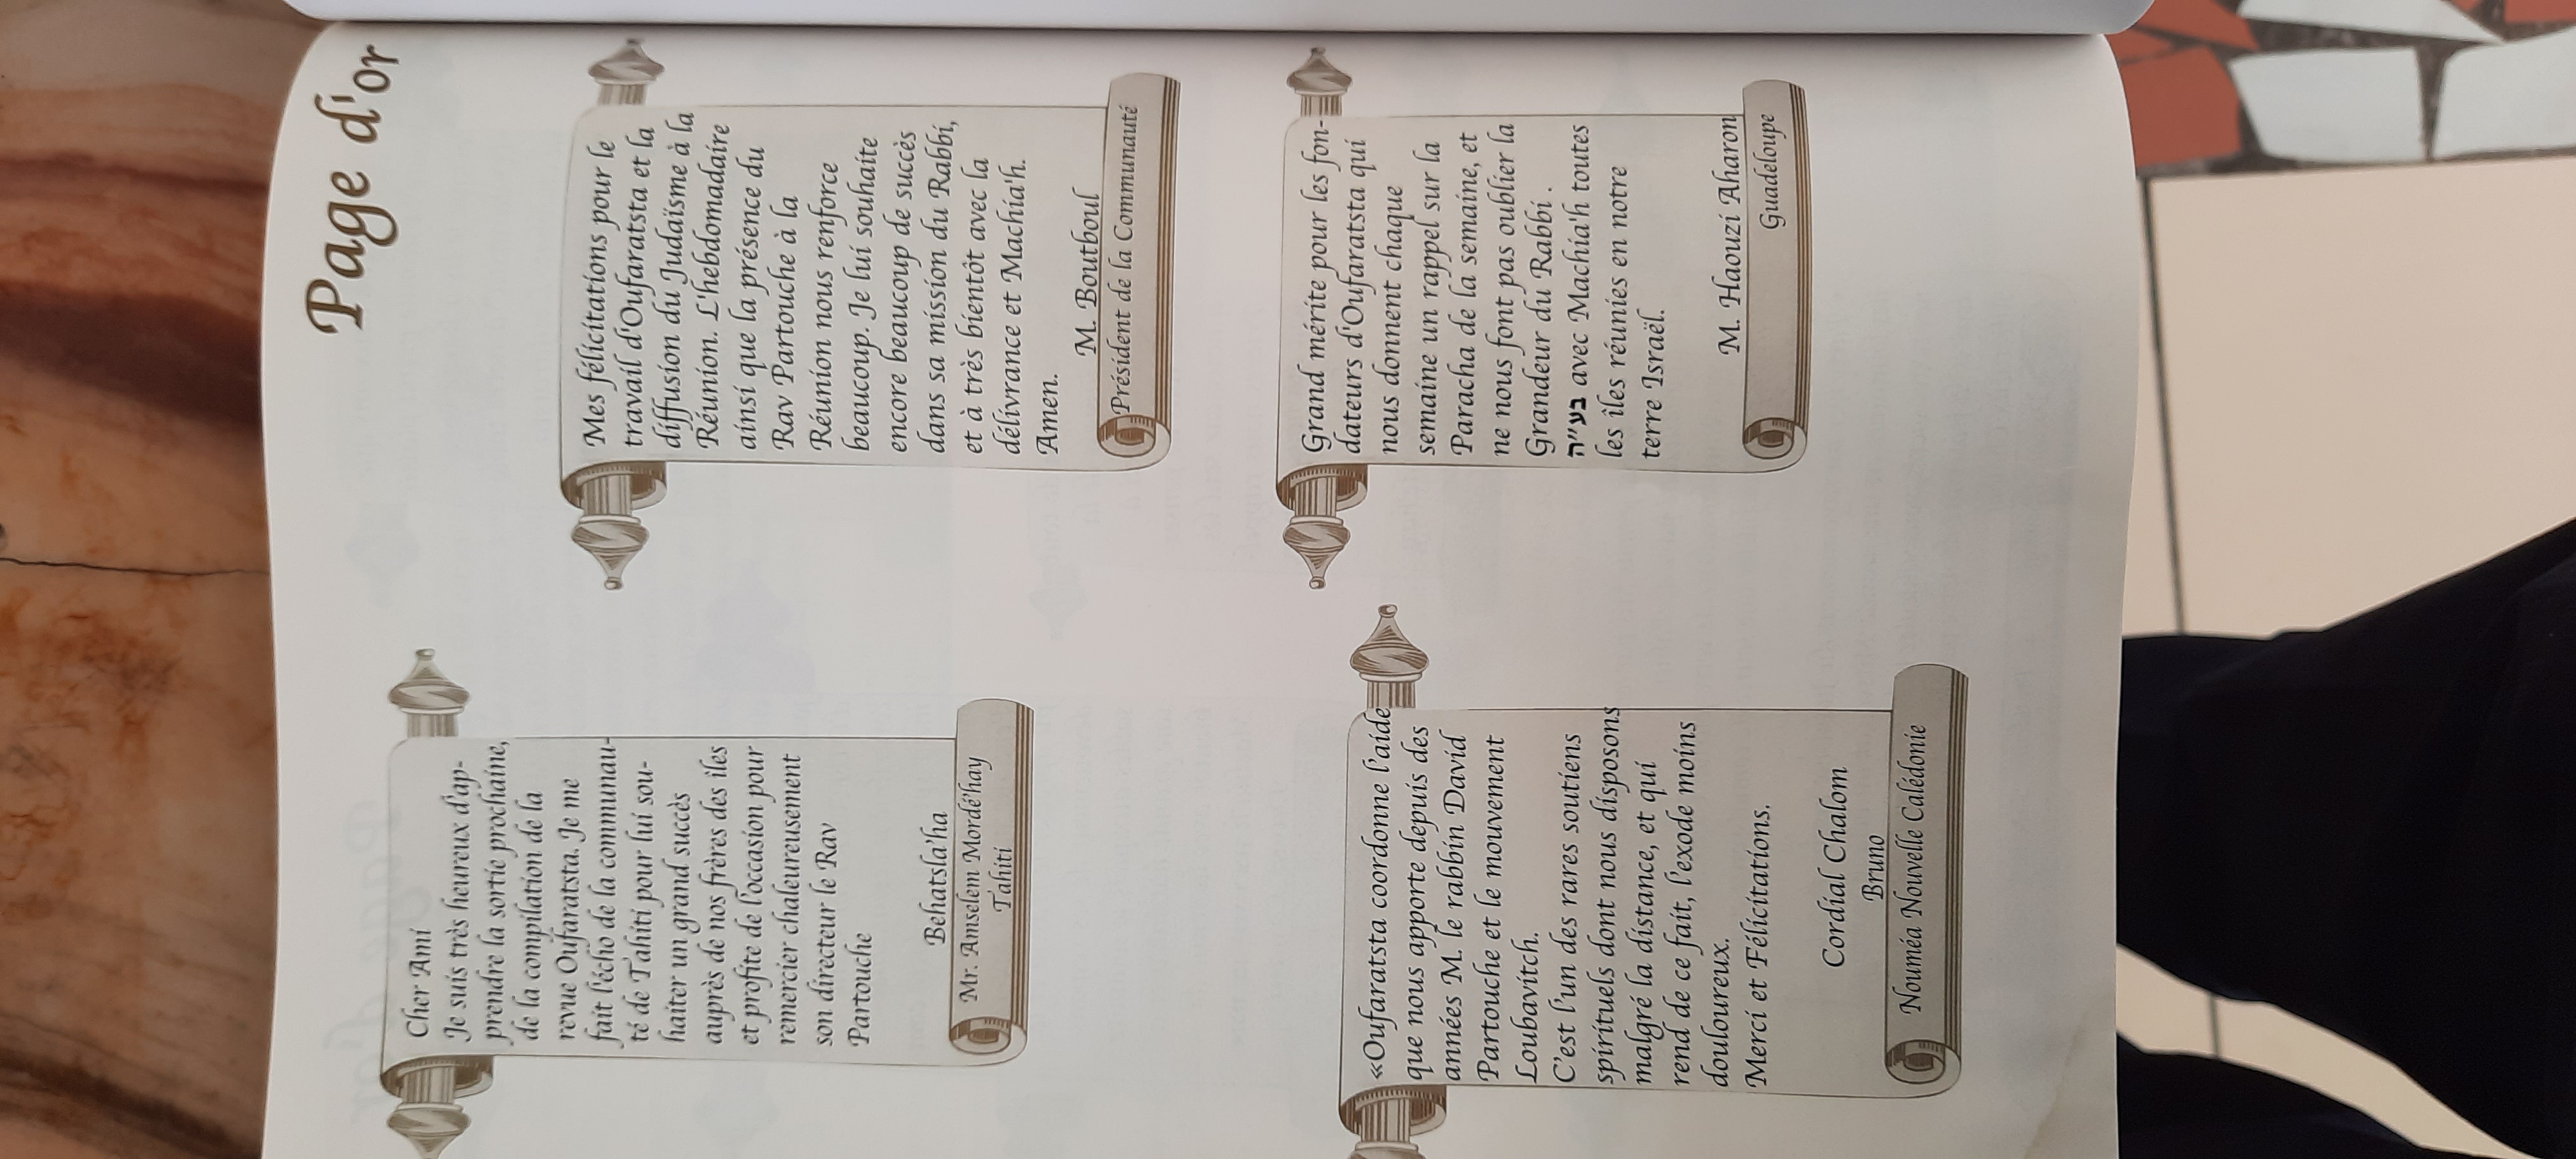 Page d'or
Cher Ami
Je suis très heureux d'ap-
prendre la sortie prochaine,
de la compilation de la
revue Oufaratsta. Je me
fait l'écho de la communau-
té de Tahiti pour lui sou-
haiter un grand succès
auprès de nos frères des îles
et profite de l'occasion pour
remercier chaleureusement
son directeur le Rav
Partouche
Behatsla'ha
Mr. Amselem Mordé'hay
Tahiti
Mes félicitations pour le
travail d'Oufaratsta et la
diffusion du Judaïsme à la
Réunion. L'hebdomadaire
ainsi que la présence du
Rav Partouche à la
Réunion nous renforce
beaucoup. Je lui souhaite
encore beaucoup de succès
dans sa mission du Rabbi,
et à très bientôt avec la
délivrance et Machia'h.
Amen.
M. Boutboul
Président de la Communauté
«Oufaratsta coordonne l'aide
que nous apporte depuis des
années M. le rabbin David
Partouche et le mouvement
Loubavitch.
C'est l'un des rares soutiens
spirituels dont nous disposons
malgré la distance, et qui
rend de ce fait, l'exode moins
douloureux.
Merci et Félicitations.
Cordial Chalom
Bruno
Nouméa Nouvelle Calédonie
Grand mérite pour les fon-
dateurs d'Oufaratsta qui
nous donnent chaque
semaine un rappel sur la
Paracha de la semaine, et
ne nous font pas oublier la
Grandeur du Rabbi .
בע"ה avec Machia'h toutes
les îles réunies en notre
terre Israël.
M. Haouzi Aharon
Guadeloupe